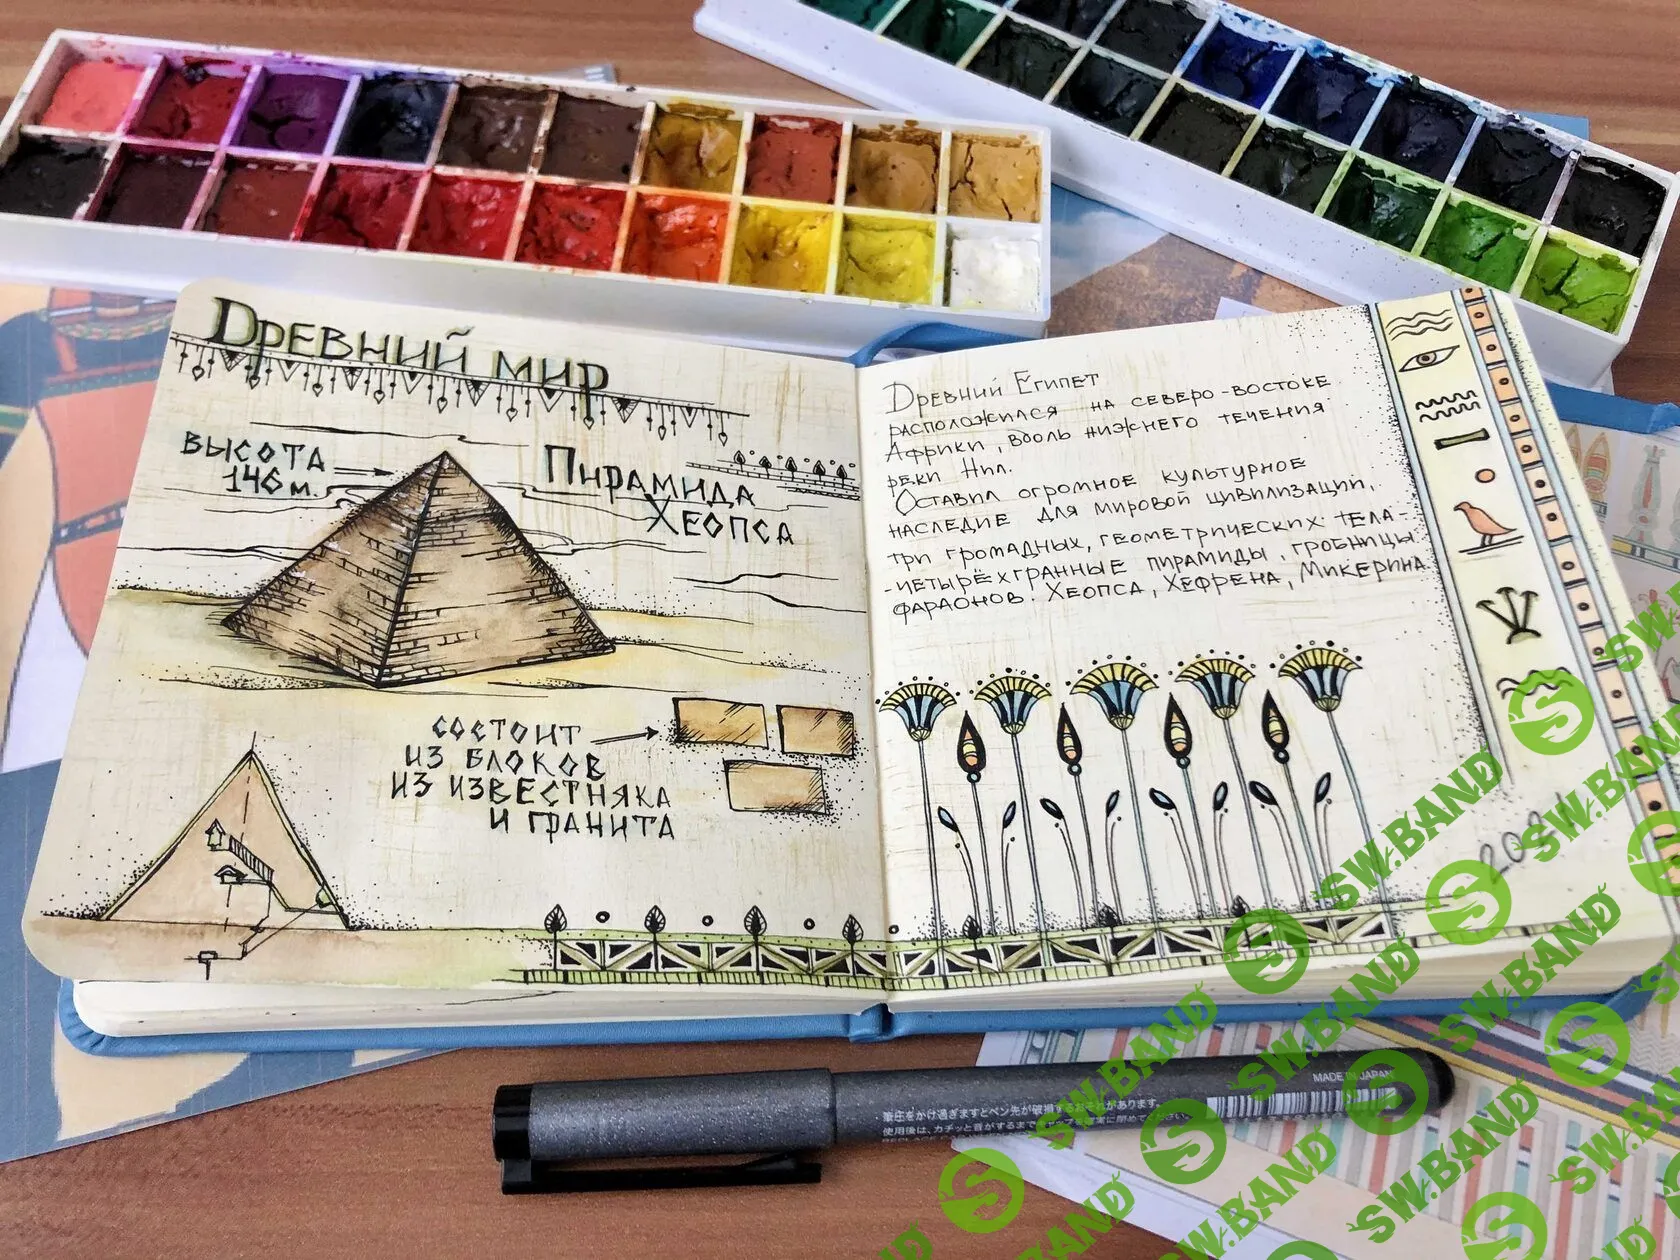 Древний мир
высота
146 м.
Пирамида
Хеопса
состоит
из блоков
из известняка
и гранита
Древний Египет
расположился на северо-востоке
Африки, вдоль нижнего течения
реки Нил.
Оставил огромное культурное
наследие для мировой цивилизации.
три громадных, геометрических тела-
-четырёхгранные пирамиды, гробницы
фараонов: Хеопса, Хефрена, Микерина
MADE IN JAPAN
筆圧をかけ過ぎますとペン先が破損するおそれがあります。
使用後は、カチッと音がするまで
SW.BAND
SW.BAND
SW.BAND
SW.BAND
SW.BAND
SW.BAND
SW.BAND
SW.BAND
SW.BAND
SW.BAND